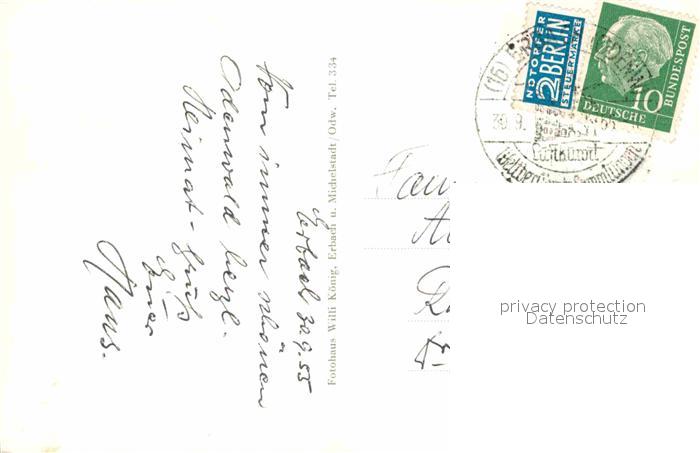 Erbach 30.9.55
Vom immer schönen
Odenwald herzl.
Heimat-Grüße
Hans.
Fotohaus Willi König, Erbach u. Michelstadt/Odw. Tel. 334
NOTOPFER
2 BERLIN
STEUERMARKE
10
DEUTSCHE
BUNDESPOST
(16)
30.9.
Luftkurort
Fam
privacy protection
Datenschutz